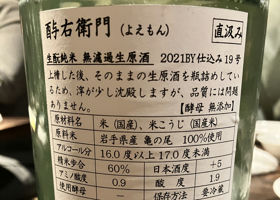 酉与右衛門（よえもん） 直汲み
生酛純米 無濾過生原酒 2021BY仕込み19号
上槽した後、そのままの生原酒を瓶詰めしている
ため、滓が少し沈殿しますが、品質には問題
ありません。 【酵母 無添加】
原材料 米（国産）、米こうじ（国産米）
原料米 岩手県産 亀の尾 100%使用
アルコール分 16.0度以上17.0度未満
精米歩合 60% 日本酒度 +5
アミノ酸度 0.9 酸度 1.9
使用酵母 － 保存方法 要冷蔵